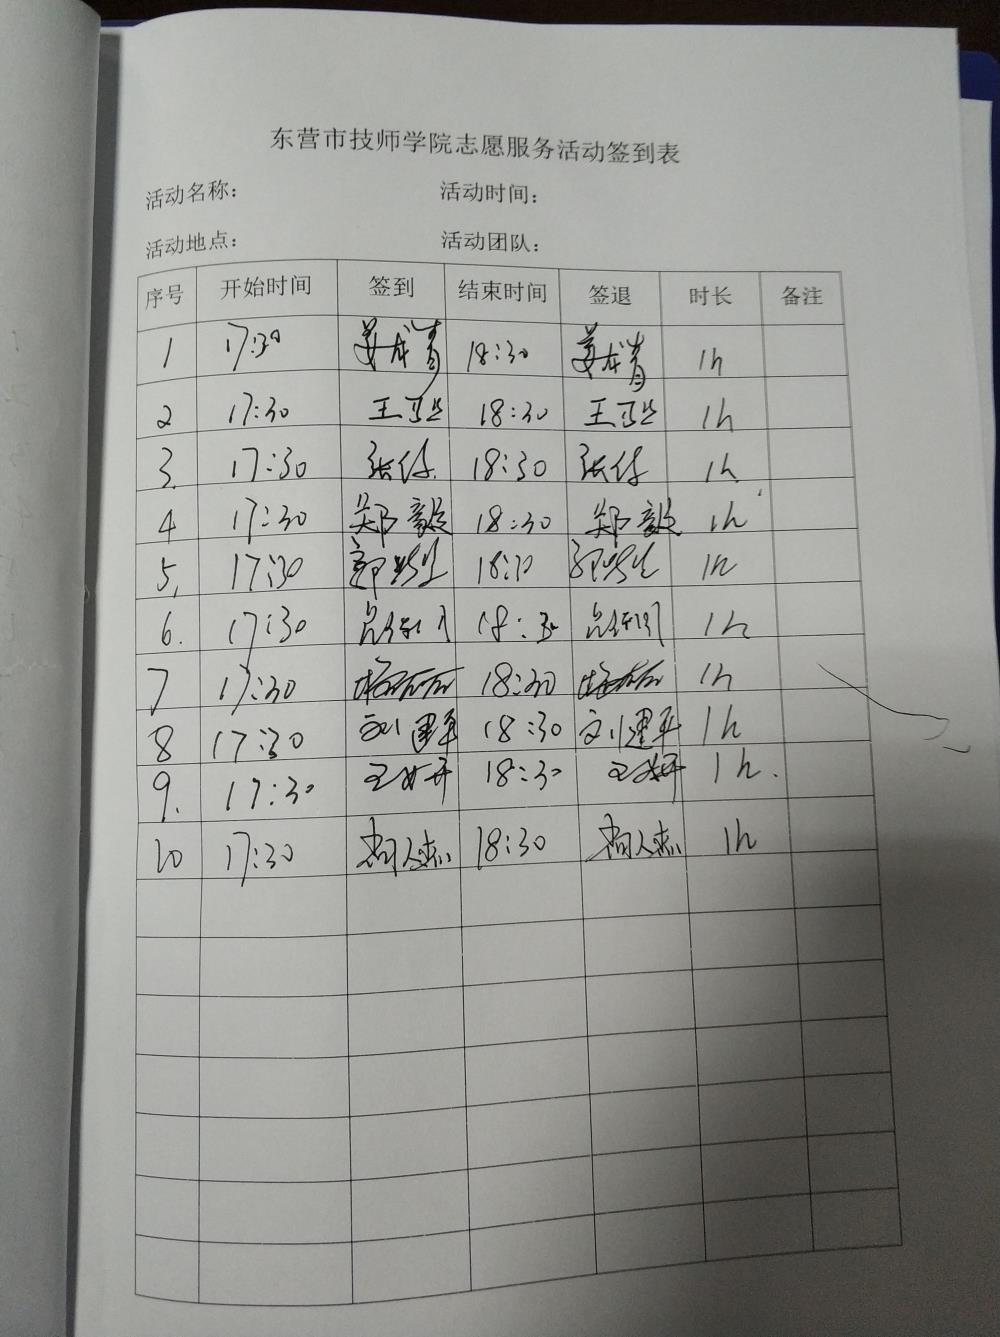 东营市技师学院志愿服务活动签到表
活动名称： 活动时间：
活动地点： 活动团队：
序号 开始时间 签到 结束时间 签退 时长 备注
1 17:30 姜成青 18:30 姜成青 1h
2 17:30 王 18:30 王 1h
3. 17:30 张 18:30 张 1h
4 17:30 郑毅 18:30 郑毅 1h
5. 17:30 18:30 1h
6. 17:30 18:30 1h
7 17:30 18:30 1h
8 17:30 刘建平 18:30 刘建平 1h
9. 17:30 王妍 18:30 王妍 1h.
10 17:30 18:30 1h